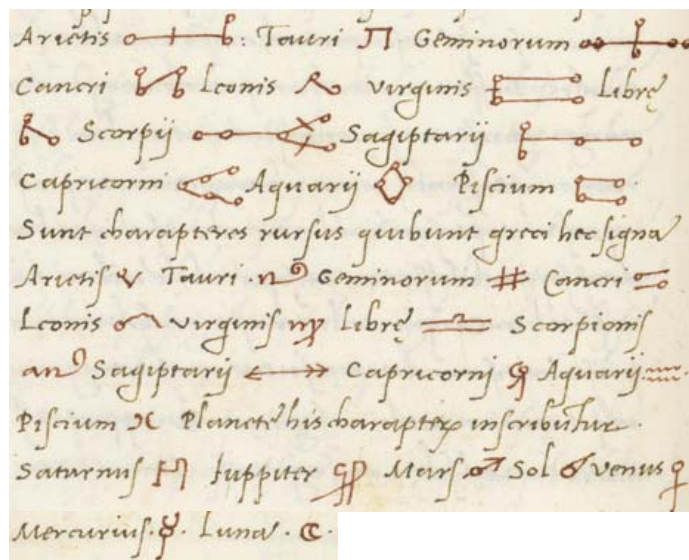 Arietis : Tauri Geminorum
Cancri Leonis virginis Librę
Scorpij Sagiptarij
Capricorni Aquarij Piscium
Sunt charapteres rursus quibunt greci hec signa
Arietis ♈ Tauri . Geminorum Cancri ♋
Leonis ♌ virginis ♍ Librę ♎ Scorpionis
Sagiptarij Capricornj Aquarij ♒
Piscium ♓ Planetę his charapterꝝ inscribūtur .
Saturnus Iuppiter Mars ♂ Sol venus ♀
Mercurius . ☿ . Luna . ☾ .